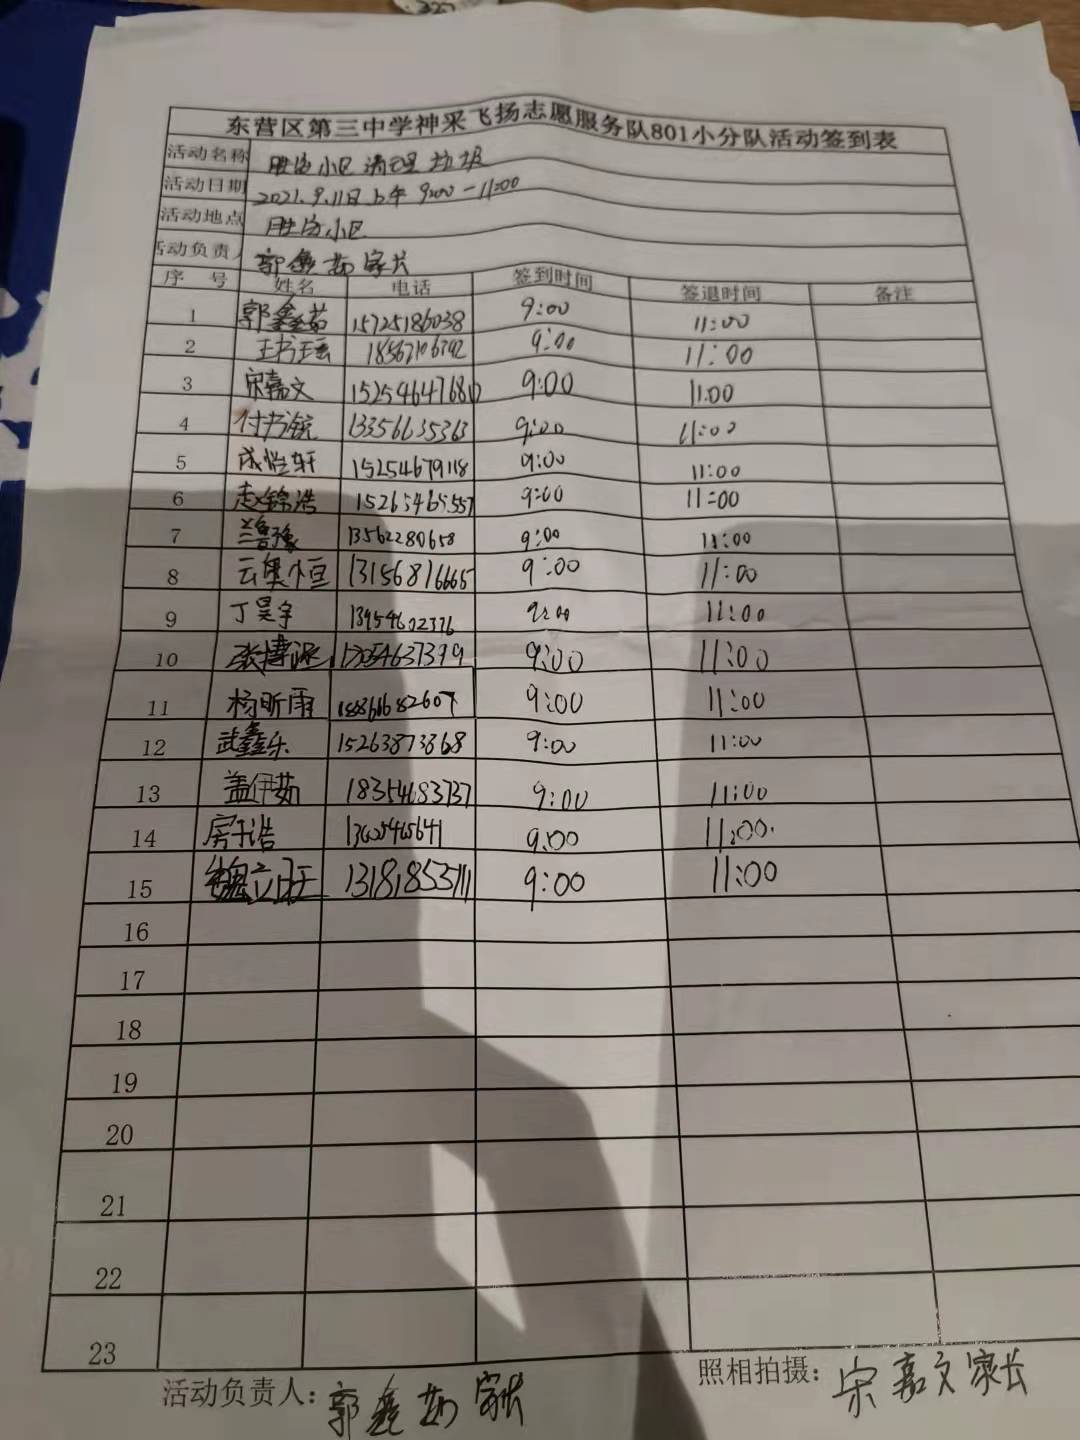 东营区第三中学神采飞扬志愿服务队801小分队活动签到表
活动名称 胜安小区清理垃圾
活动日期 2021.9.11日上午 9:00-11:00
活动地点 胜安小区
活动负责人 郭鑫茹家长
序号 姓名 电话 签到时间 签退时间 备注
1 郭鑫茹 15725186038 9:00 11:00
2 王书瑶 18567106792 9:00 11:00
3 宋嘉文 15254647680 9:00 11:00
4 付书锐 13356635363 9:00 11:00
5 成恺轩 15254679118 9:00 11:00
6 赵锦浩 15265465557 9:00 11:00
7 兰鲁豫 13562280658 9:00 11:00
8 云奥恒 13156816665 9:00 11:00
9 丁昊宇 13954602376 9:00 11:00
10 张博涵 9:00 11:00
11 杨昕雨 18861682607 9:00 11:00
12 武鑫乐 15263873868 9:00 11:00
13 盖伊茹 18354683737 9:00 11:00
14 房于浩 9:00 11:00
15 魏立旺 13181855111 9:00 11:00
16
17
18
19
20
21
22
23
活动负责人：郭鑫茹家长 照相拍摄：宋嘉文家长